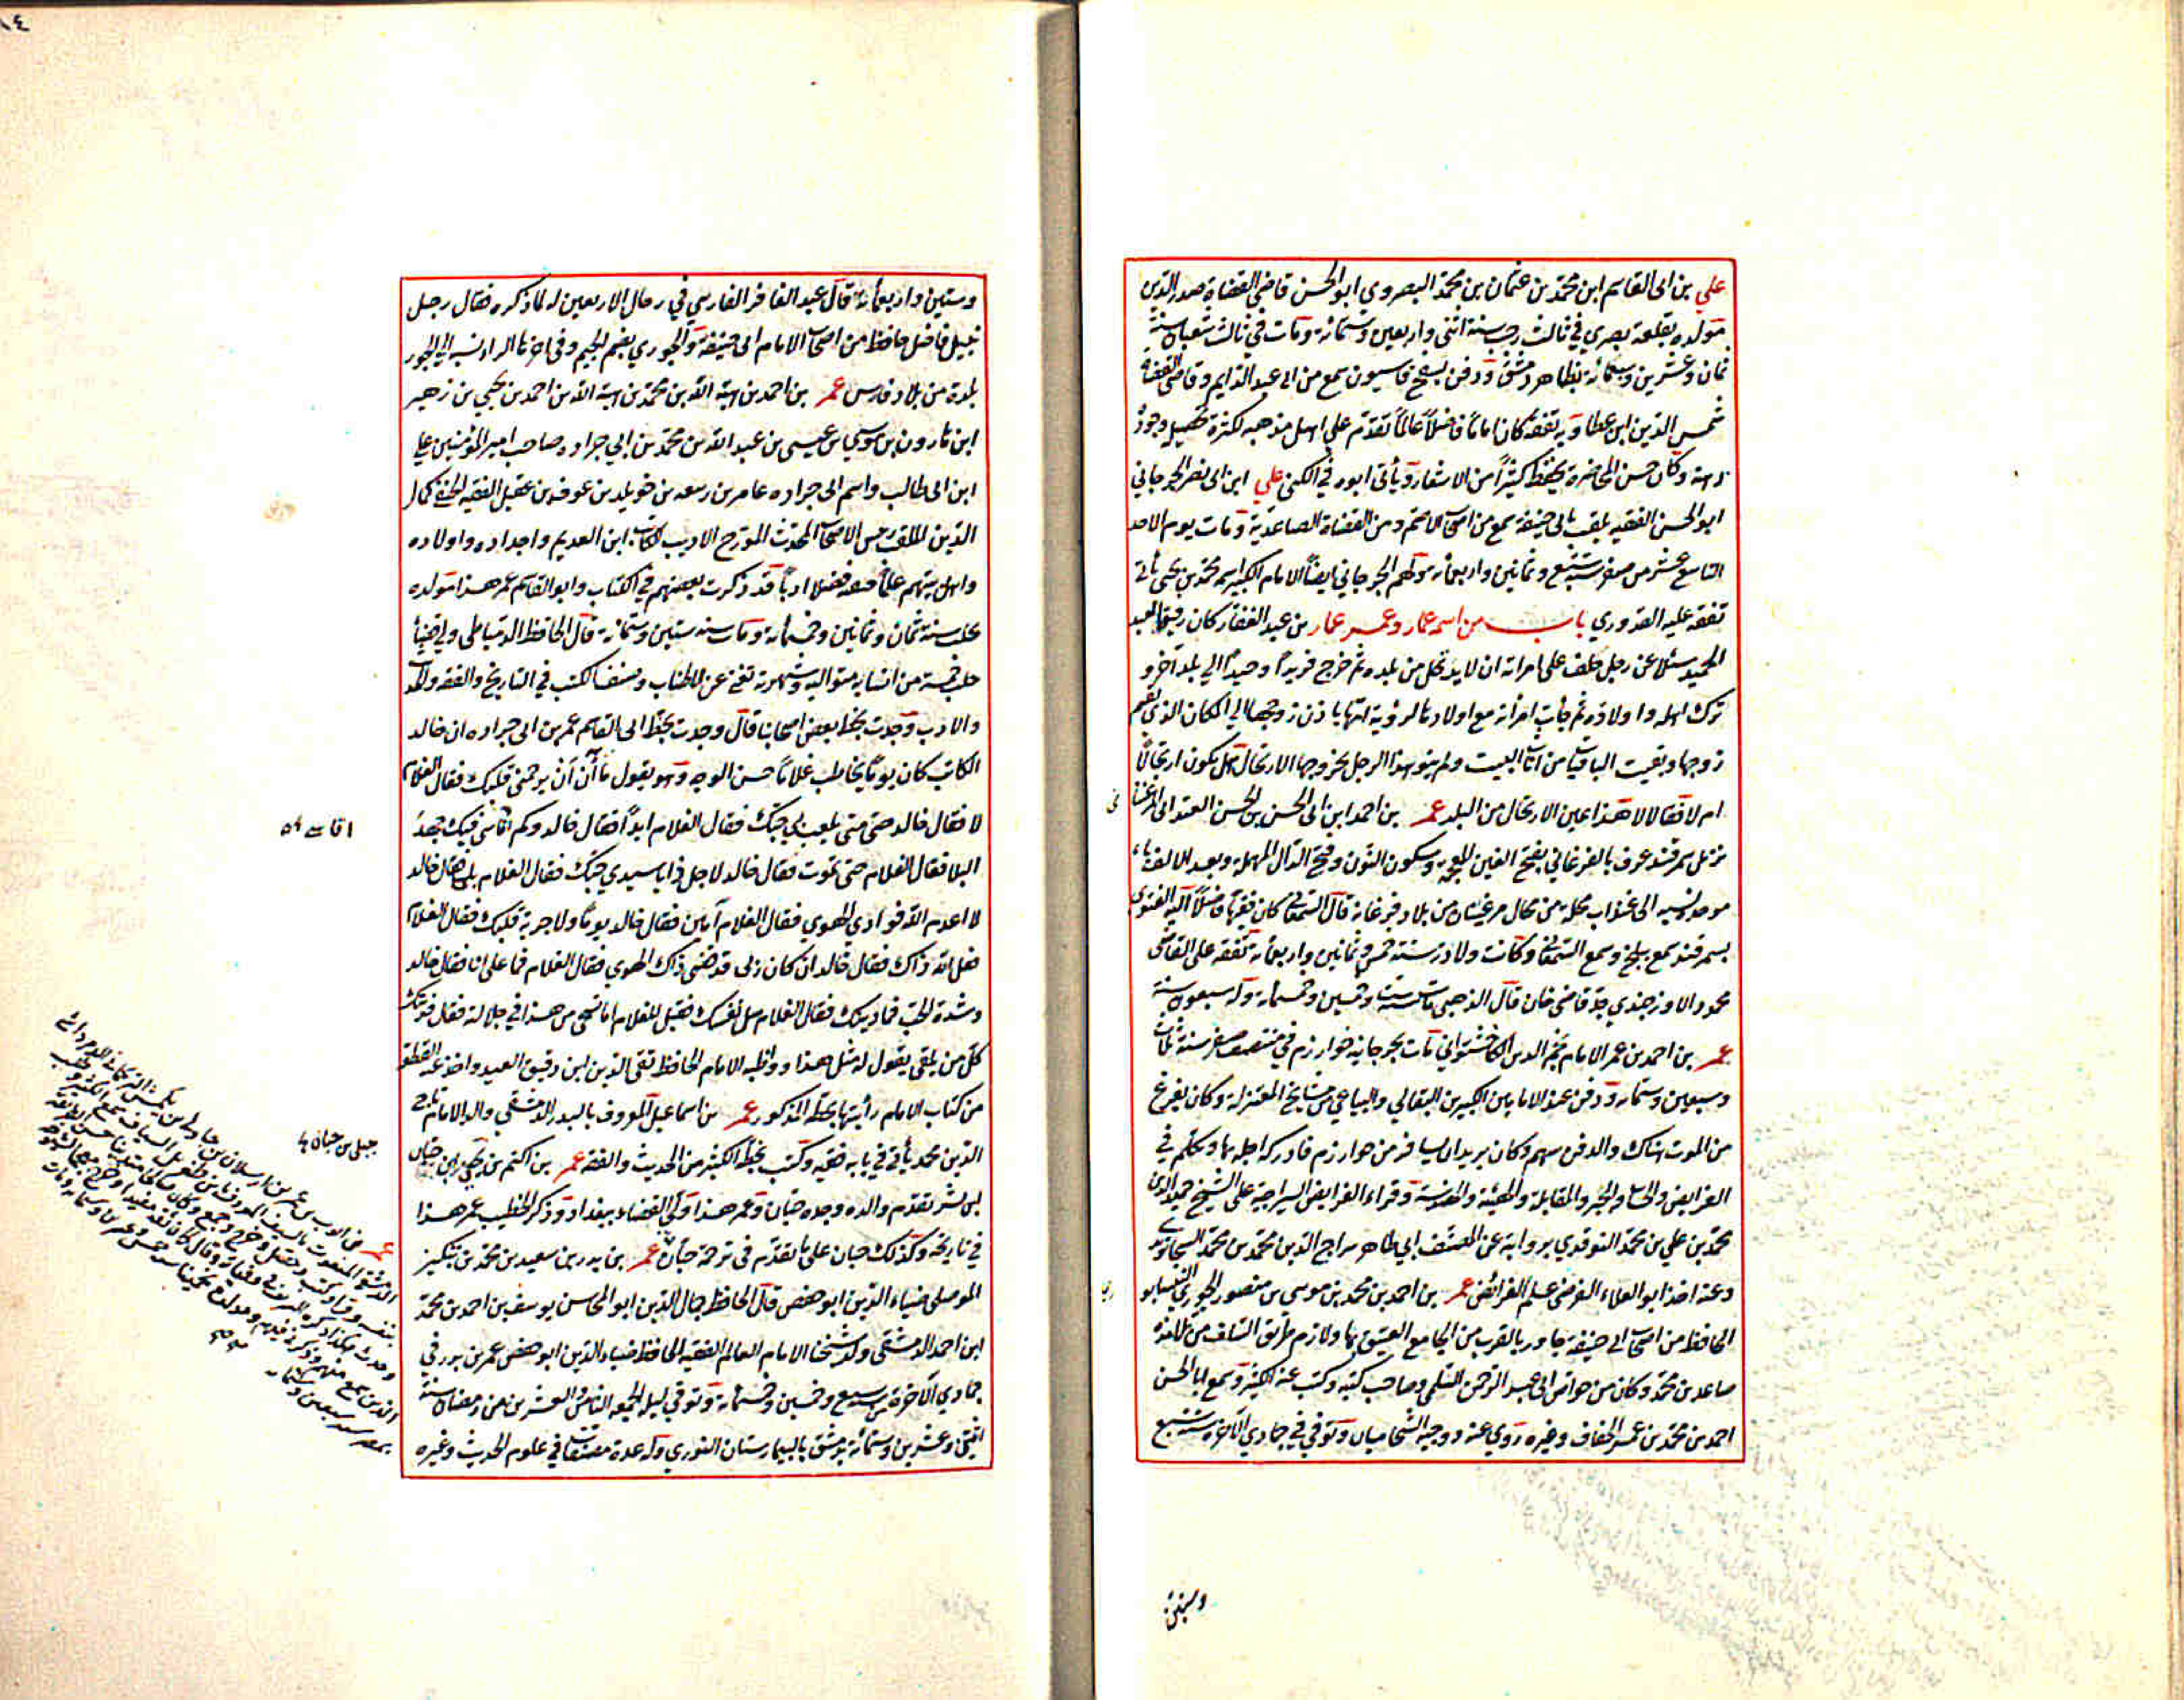 علي بن ابى القاسم ابن محمد بن عثمان بن محمد البصروي ابو الحسن قاضي القضاة صدر الدين
مولده بقلعة بصري في ثالث رجب سنة اثنى واربعين وستمائة ومات في ثالث شعبان سنة
ثمان وعشرين وسبعمائة بظاهر دمشق ودفن بسفح قاسيون سمع من ابن عبد الدايم وقاضي القضاة
شمس الدين ابن عطا وبه تفقه كان اماما فاضلاً عالماً تقدم على اهل مذهبه لكثرة تحصيله وجودة
ذهنه وكان حسن المحاضرة يحفظ كثيراً من الاشعار ويأتى ابوه في الكنى علي ابن ابى نصر الجرجاني
ابو الحسن الفقيه يلقب بابي حنيفة سمع من اصحاب الاصم ومن القضاة الصاعدية ومات يوم الاحد
التاسع عشر من صفر سنة تسع وثمانين واربعمائة ولهم الجرجاني ايضاً الامام الكبير اسمه محمد بن يحيى يأتي
تفقه عليه القدوري باب من اسمه عمار وعمر عمار بن عبد الغفار كان رفيقا لعبد
الحميد سئلا عن رجل حلف على امراته ان لا يدخل من بلده ثم خرج فريداً وحيداً الى بلد آخر و
ترك اهله واولاده ثم جأت امرأته مع اولادها لرؤية امها باذن زوجها الى المكان الذى فيه
زوجها وبقيت الباقيات من اثاث البيت ولم ينو هذا الرجل بخروجها الارتحال هل يكون ارتحالا
ام لا فقالا لا هذا عين الارتحال من البلد عمر بن احمد ابن ابى الحسن بن الحسن الغندابى المرغينانى
نزيل سمرقند عرف بالفرغاني بفتح الغين المعجمة وسكون النون وفتح الدال المهملة وبعد الالف باء
موحدة نسبة الى غنداب محلة من محال مرغينان من بلاد فرغانة قال السمعانى كان فقيها فاضلاً اليه الفتوى
بسمرقند سمع ببلخ وسمع السمعانى وكانت ولادته سنة خمس وثمانين واربعمائة تفقه على القاضى
محمود الاوزجندي جد قاضى خان قال الذهبى مات سنة ست وخمسين وخمسمائة وله سبعون سنة
عمر بن احمد بن عمر الامام نجم الدين الكاخشتوانى مات بجرجانية خوارزم في منتصف صفر سنة ثلاث
وسبعين وستمائة ودفن عند الامامين الكبيرين البقالي والبياعي من مشايخ المعتزلة وكان يفزع
من الموت هناك والدفن بها وكان يريد ان يسافر من خوارزم فادركه اجله بها وتكلم في
الفرايض والحساب والجبر والمقابلة والهيئة والهندسة وقراء الفرايض السراجية على الشيخ حميد الدين
محمد بن علي بن محمد النوقدي بروايته عن المصنف ابي طاهر سراج الدين محمد بن محمد السجاوندي
وعنه اخذ ابو العلاء الفرضى علم الفرائض عمر بن احمد بن محمد بن موسى بن منصور الجوري النيسابوري
الحافظ من اصحاب ابى حنيفة جاور بالقرب من الجامع العتيق بها ولازم طريق السلف من تلامذة
صاعد بن محمد وكان من خواص ابى عبد الرحمن السلمى وصاحب كتبه وكتب عنه الكثير وسمع ابا الحسن
احمد بن محمد بن عمر الخفاف وغيره روى عنه ووجيه الشحاميان وتوفى في جمادي الآخرة سنة تسع
وستين
وستين واربعمائة قال عبد الغافر الفارسى في رحال الاربعين له لما ذكره فقال رجل
نبيل فاضل حافظ من اصحاب الامام ابى حنيفة والجوري بضم الجيم وفى اخرها الراء نسبة الى الجور
بلدة من بلاد فارس عمر بن احمد بن هبة الله بن محمد بن هبة الله بن احمد بن يحيى بن زهير
ابن هارون بن موسى بن عيسى بن عبد الله بن محمد بن ابي جراده صاحب امير المؤمنين علي
ابن ابى طالب واسم ابى جراده عامر بن ربيعه بن خويلد بن عوف بن عقيل الفقيه الحنفى كمال
الدين الملقب رئيس الاصحاب المحدث المورخ الاديب الكاتب ابن العديم واجداده واولاده
واهل بيتهم علما فقها فضلا ادبا قد ذكرت بعضهم في الكتاب وابو القاسم عمر هذا مولده
بحلب سنة ثمان وثمانين وخمسمائة ومات سنة ستين وستمائة قال الحافظ الدمياطى ولي قضاء
حلب خمسة من ابائه متوالية وشهرته تغني عن الاطناب وصنف الكتب في التاريخ والفقه والحديث
والادب وجدت بخط بعض اصحابنا قال وجدت بخط ابى القاسم عمر بن ابى جراده ان خالد
الكاتب كان يوما يخاطب غلاماً حسن الوجه وهو يقول ما آن ان يرحمني قلبك فقال الغلام
لا فقال خالد حتى متى يلعب بى حبك فقال الغلام ابداً فقال خالد وكم اقاسى فيك جهد
البلا فقال الغلام حتى تموت فقال خالد لاجل ذا يا سيدي حبك فقال الغلام بلى فقال خالد
لا اعدم الله فوادي الهوي فقال الغلام آمين فقال خالد يوما ولا جربه قلبك فقال الغلام
فعل الله ذاك فقال خالد ان كان ربى قد قضى ذاك الهوي فقال الغلام فما على انا فقال خالد
وشدة الحب فما ذنبك فقال الغلام سل نفسك فقيل للغلام اما تستحى من هذا في جلالته فقال
كل من يلقى يقول له مثل هذا وواظبه الامام الحافظ تقى الدين ابن دقيق العيد واخذ عنه القطعة
من كتاب الامام رأيتها بخطه المذكور عمر بن اسماعيل المعروف بالبدر الدمشقى والد الامام تاج
الدين محمد يأتى في بابه فقيه وكتب بخطه الكثير من الحديث والفقه عمر بن اكثم بن حيان
ابن بشر تقدم والده وجده حيان وعمر هذا ولي القضاء ببغداد وذكر الخطيب عمر هذا
في تاريخه وكذلك حيان على ما تقدم في ترجمة حيان عمر بن بدر بن سعيد بن محمد بن تنكيز
الموصلى ضياء الدين ابو حفص قال الحافظ جمال الدين ابو المحاسن يوسف بن احمد بن محمد
ابن احمد الدمشقى ولد شيخنا الامام العالم الفقيه الحافظ ضياء الدين ابو حفص عمر بن بدر في
جمادي الآخرة من سنة سبع وخمسين وخمسمائة وتوفي ليلة الجمعة الثامن والعشرين من رمضان سنة
اثنتى وعشرين وستمائة بدمشق بالبيمارستان النوري وله عدة مصنفات في علوم الحديث وغيره